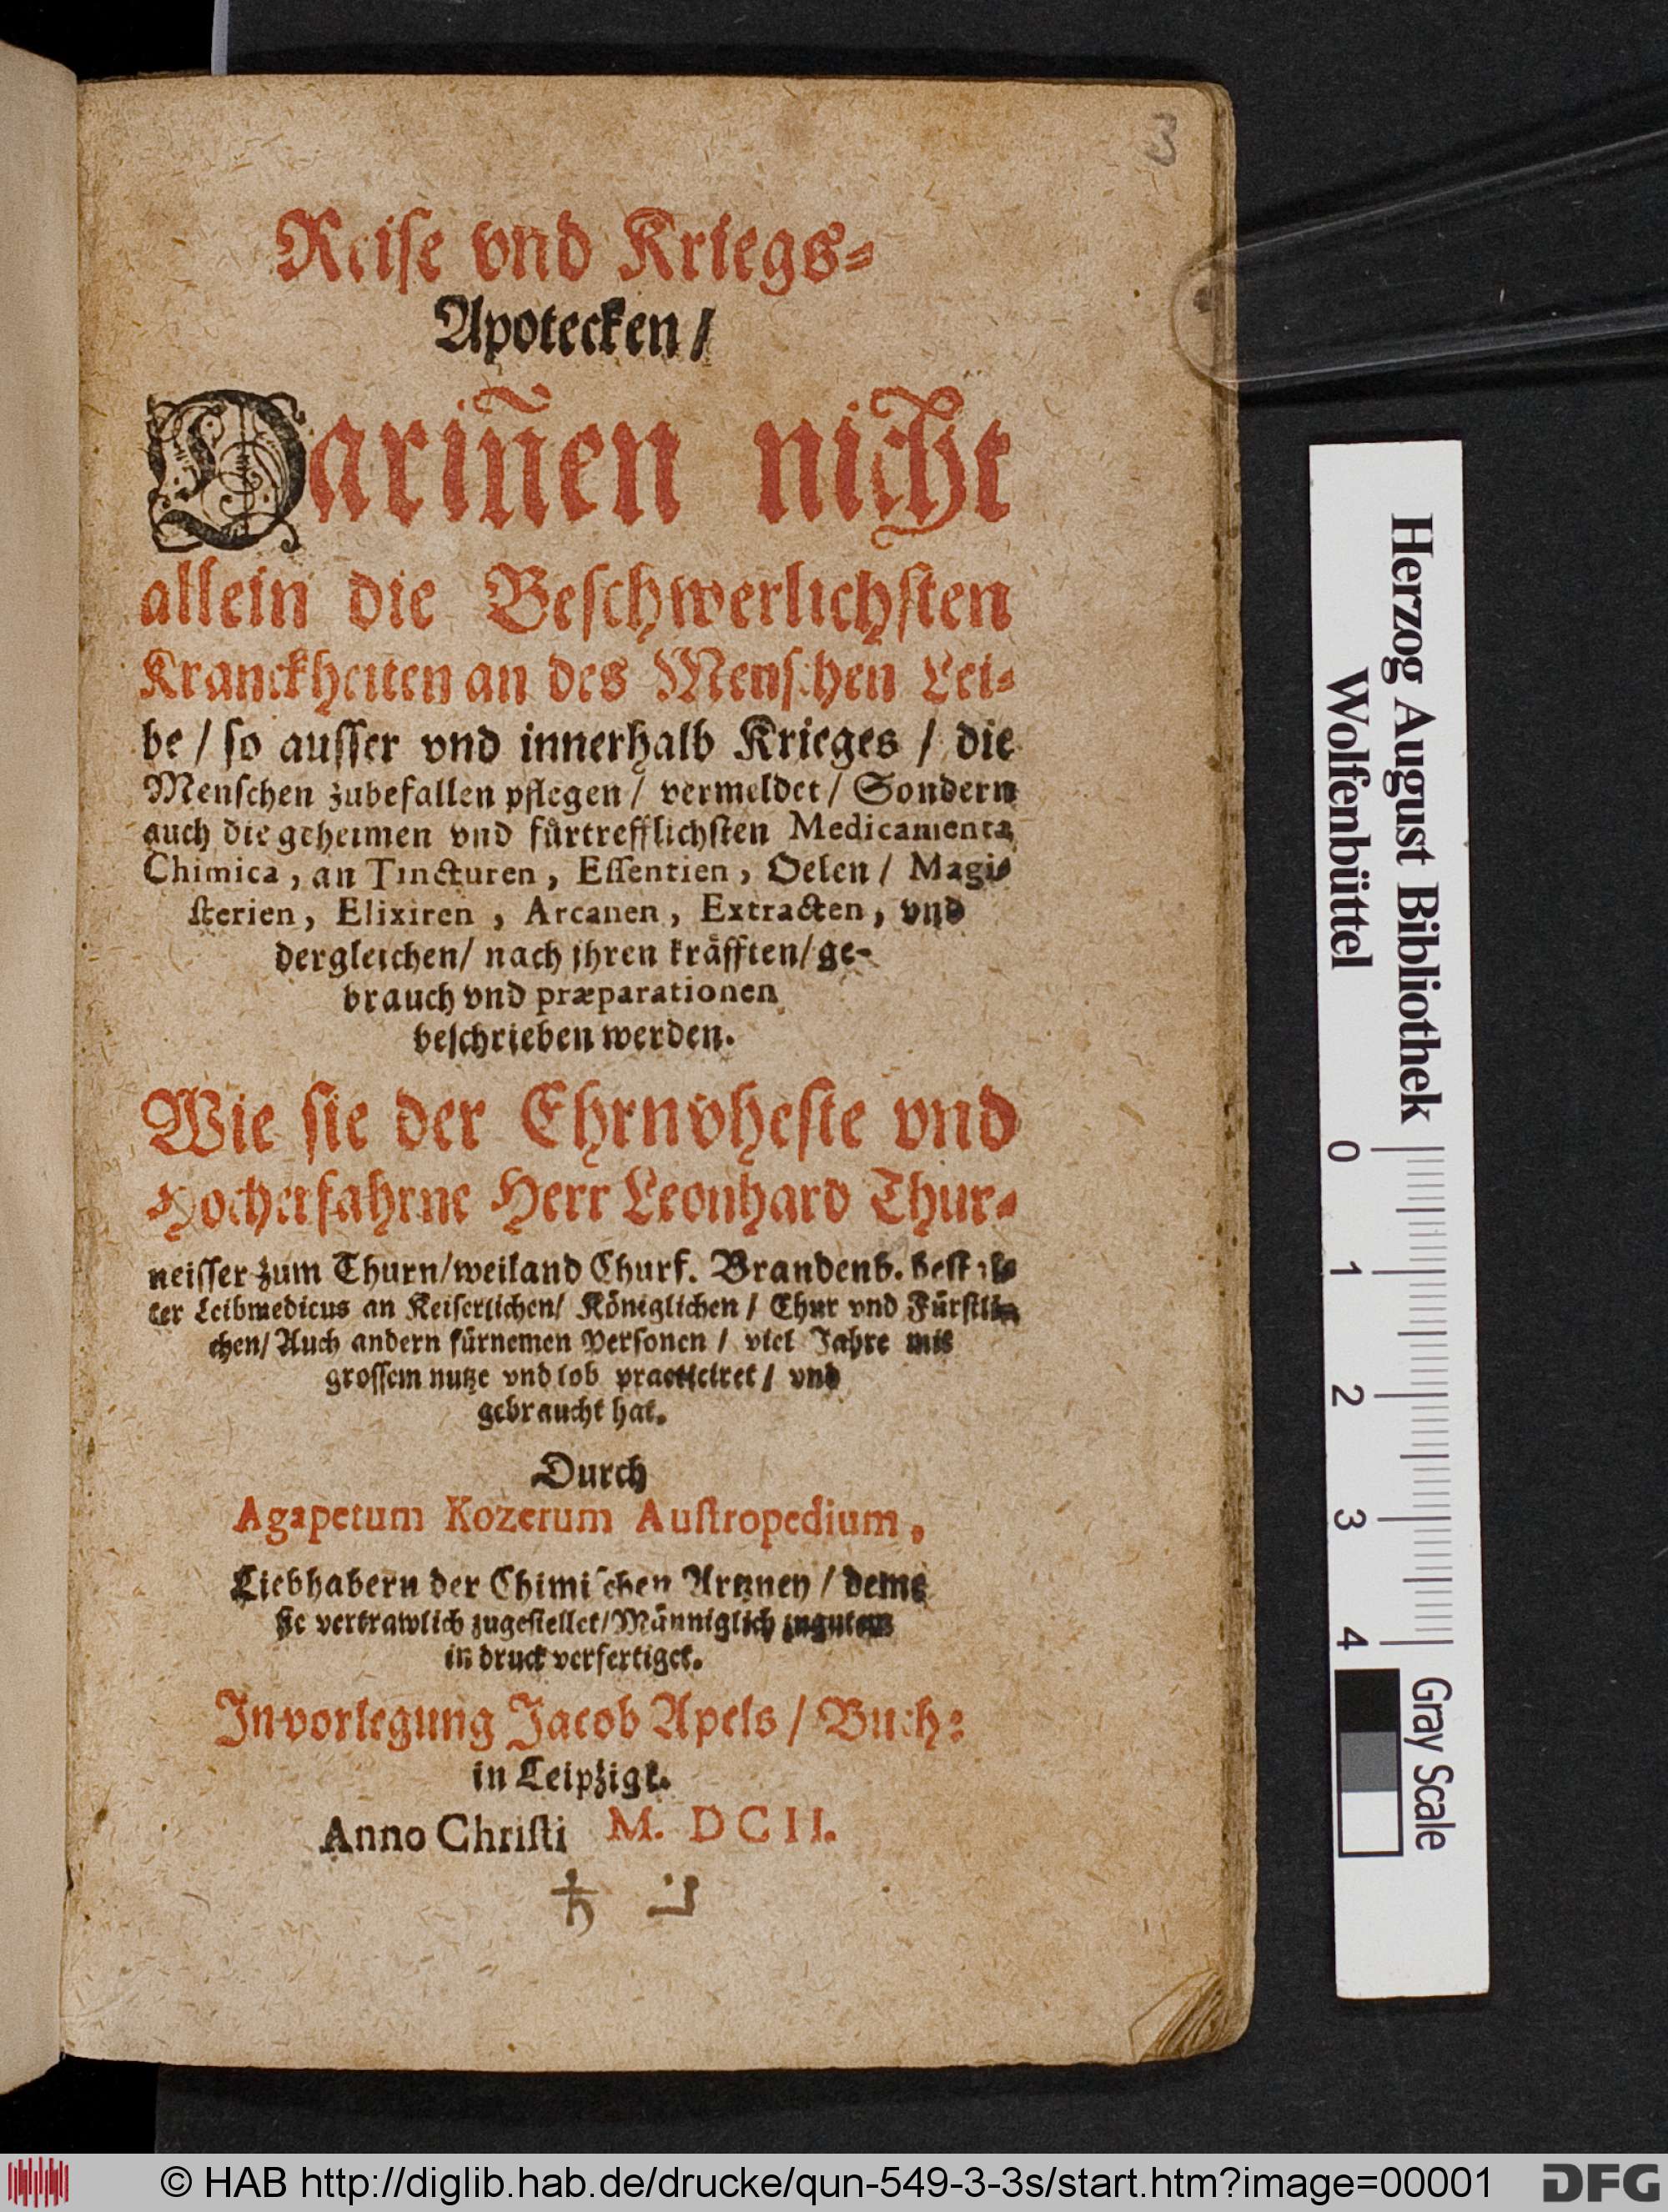 3
Reise vnd Kriegs⸗
Apotecken/
Dariñen nicht
allein die Beschwerlichsten
Kranckheiten an des Menschen Lei⸗
be / so ausser vnd innerhalb Krieges / die
Menschen zubefallen pflegen / vermeldet / Sondern
auch die geheimen vnd fürtrefflichsten Medicamenta
Chimica, an Tincturen, Essentien, Oelen / Magi⸗
sterien, Elixiren, Arcanen, Extracten, vnd
dergleichen/ nach jhren kräfften/ge⸗
brauch vnd præparationen
beschrieben werden.
Wie sie der Ehrnvheste vnd
Hocherfahrne Herr Leonhard Thur⸗
neisser zum Thurn/weiland Churf. Brandenb. bestal⸗
ter Leibmedicus an Keiserlichen/ Königlichen / Chur vnd Fürstli⸗
chen/ Auch andern fürnemen Personen / viel Jahre mit
grossem nutze vnd lob practiciret / vnd
gebraucht hat.
Durch
Agapetum Kozerum Austropedium,
Liebhabern der Chimischen Artzney / deme
sie vertrawlich zugestellet/Männiglich zugutem
in druck verfertiget.
In vorlegung Jacob Apels / Buch:
in Leipzigk.
Anno Christi M. DCII.
Herzog August Bibliothek
Wolfenbüttel
0 1 2 3 4
Gray Scale
© HAB http://diglib.hab.de/drucke/qun-549-3-3s/start.htm?image=00001
DFG